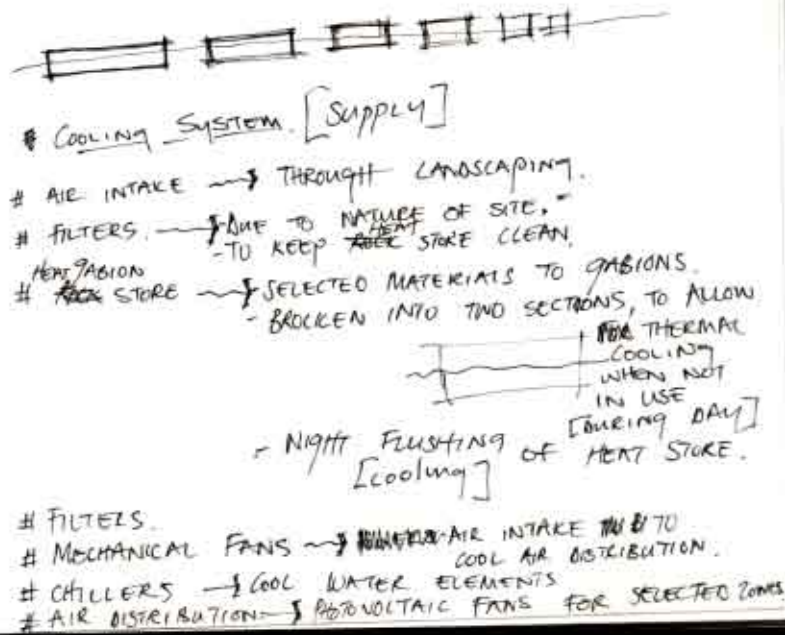 # COOLING SYSTEM. [SUPPLY]
# AIR INTAKE → THROUGH LANDSCAPING.
# FILTERS. → DUE TO NATURE OF SITE.
- TO KEEP HEAT STORE CLEAN.
HEAT GABION
# STORE → SELECTED MATERIALS TO GABIONS.
- BROCKEN INTO TWO SECTIONS, TO ALLOW
FOR THERMAL
COOLING
WHEN NOT
IN USE
[DURING DAY]
- NIGHT FLUSHING OF HEAT STORE.
[cooling]
# FILTERS.
# MECHANICAL FANS → AIR INTAKE TO
COOL AIR DISTRIBUTION.
# CHILLERS → COOL WATER ELEMENTS
# AIR DISTRIBUTION → PHOTOVOLTAIC FANS FOR SELECTED ZONES